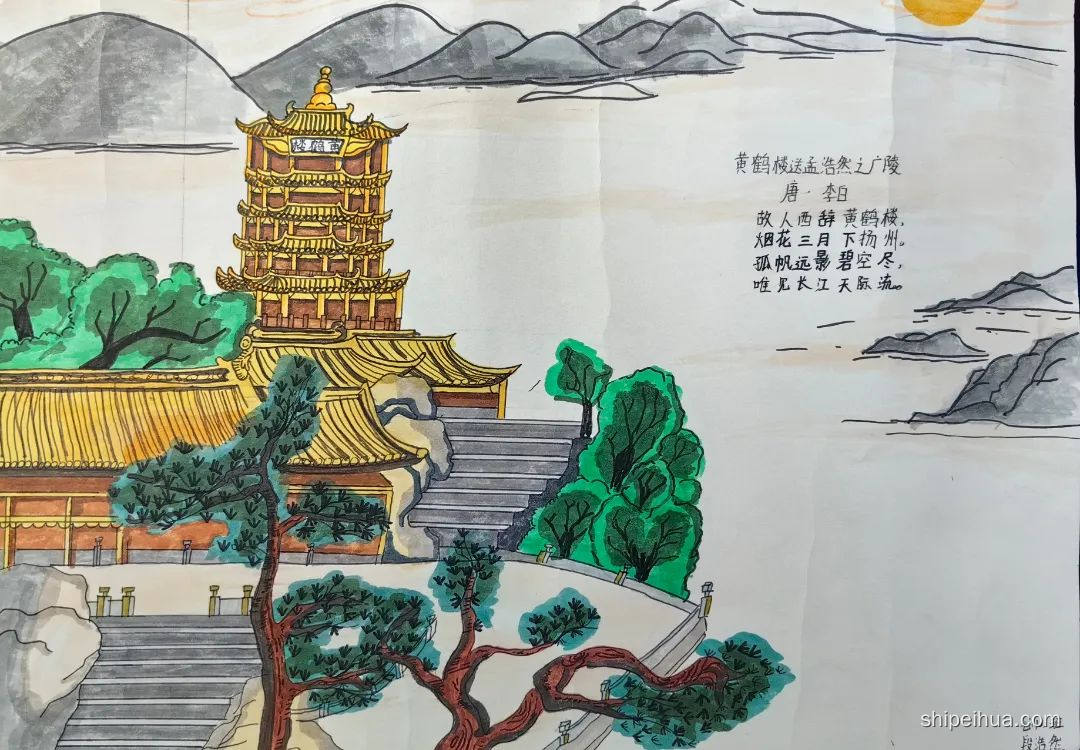 楼鹤黄
黄鹤楼送孟浩然之广陵
唐·李白
故人西辞黄鹤楼,
烟花三月下扬州。
孤帆远影碧空尽,
唯见长江天际流。
shipeihua.com
段浩然